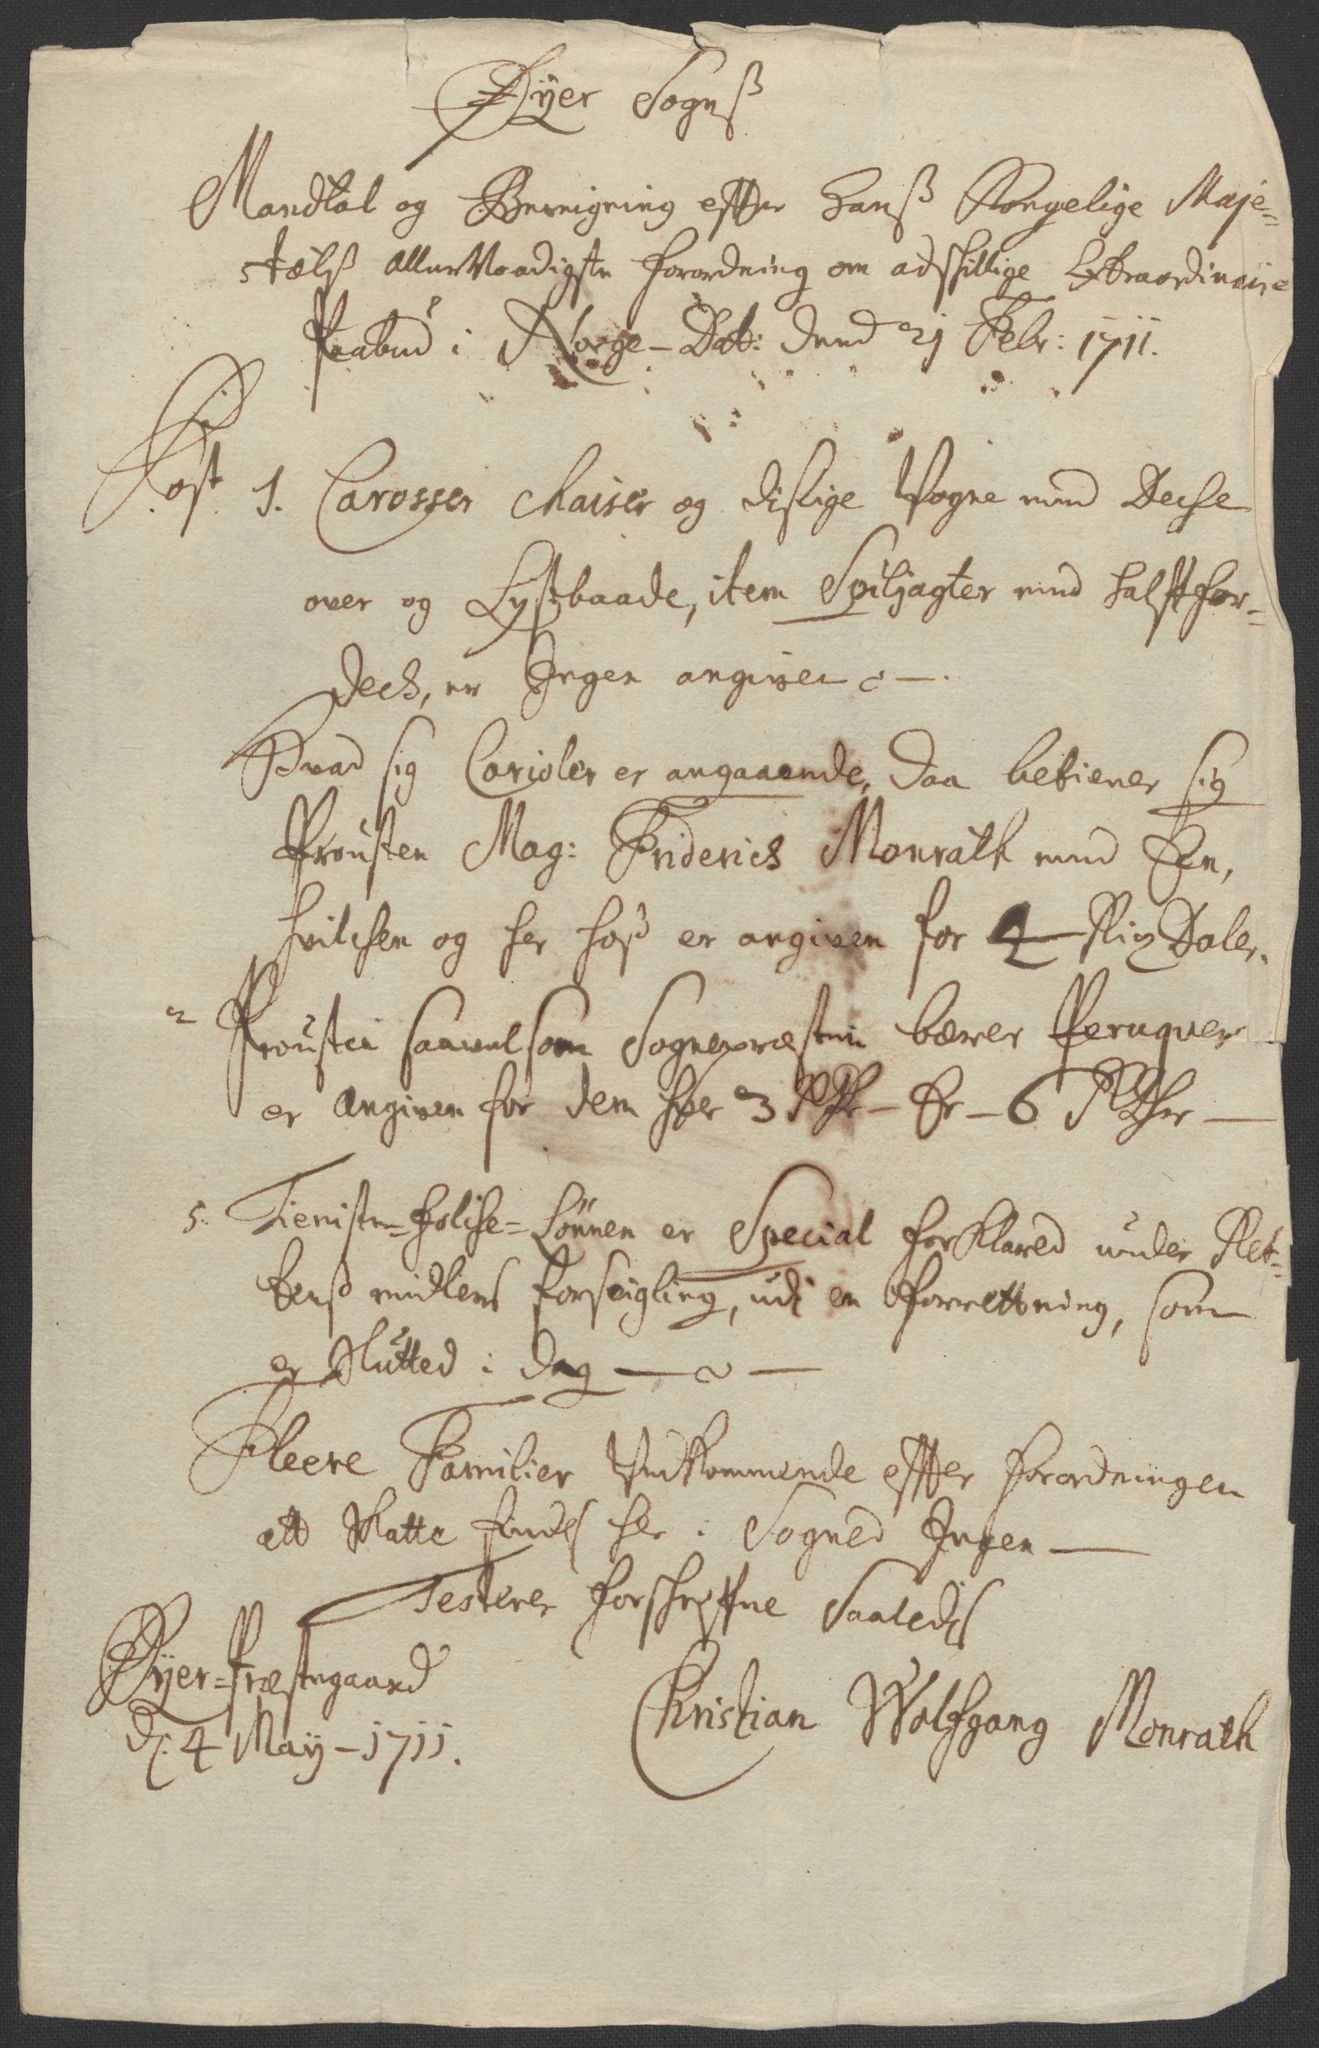 Øyer Sogns
Mandtal og Beregning effter Hans Kongelige Maje-
stæts allernaadigste forordning om adskillige Extraordinaire
Paabud i Norge Dat: Dend 21 Febr: 1711.
Post 1. Carosser Chaiser og dislige Vogne med Deche
over og Lystbaade, item Spiljagter med halft for-
dech, er Ingen angiven
Hvad sig Carioler er angaaende, daa betiener sig
Prousten Mag: Friderich Monrath med Een,
hvilchen og her hoss er angiven for 4 Rix Daler.
2 Prousten saavelsom Sognepræsten bærer Peruquer
er angiven for dem hver 3 Rdr - Er - 6 Rdr
5. Tieniste-folche-Lønnen er Special forklared under Ret-
tens midlens forseigling, udi en forrettning, som
er Sluttet i dag
Fleere Familier Vedkommende effter forordningen
att Skatte findes her i Sogned Ingen
Testerer forschreffne Saaledes
Øyer-Præstegaard
d: 4 Maij - 1711.
Christian Wolfgang Monrath